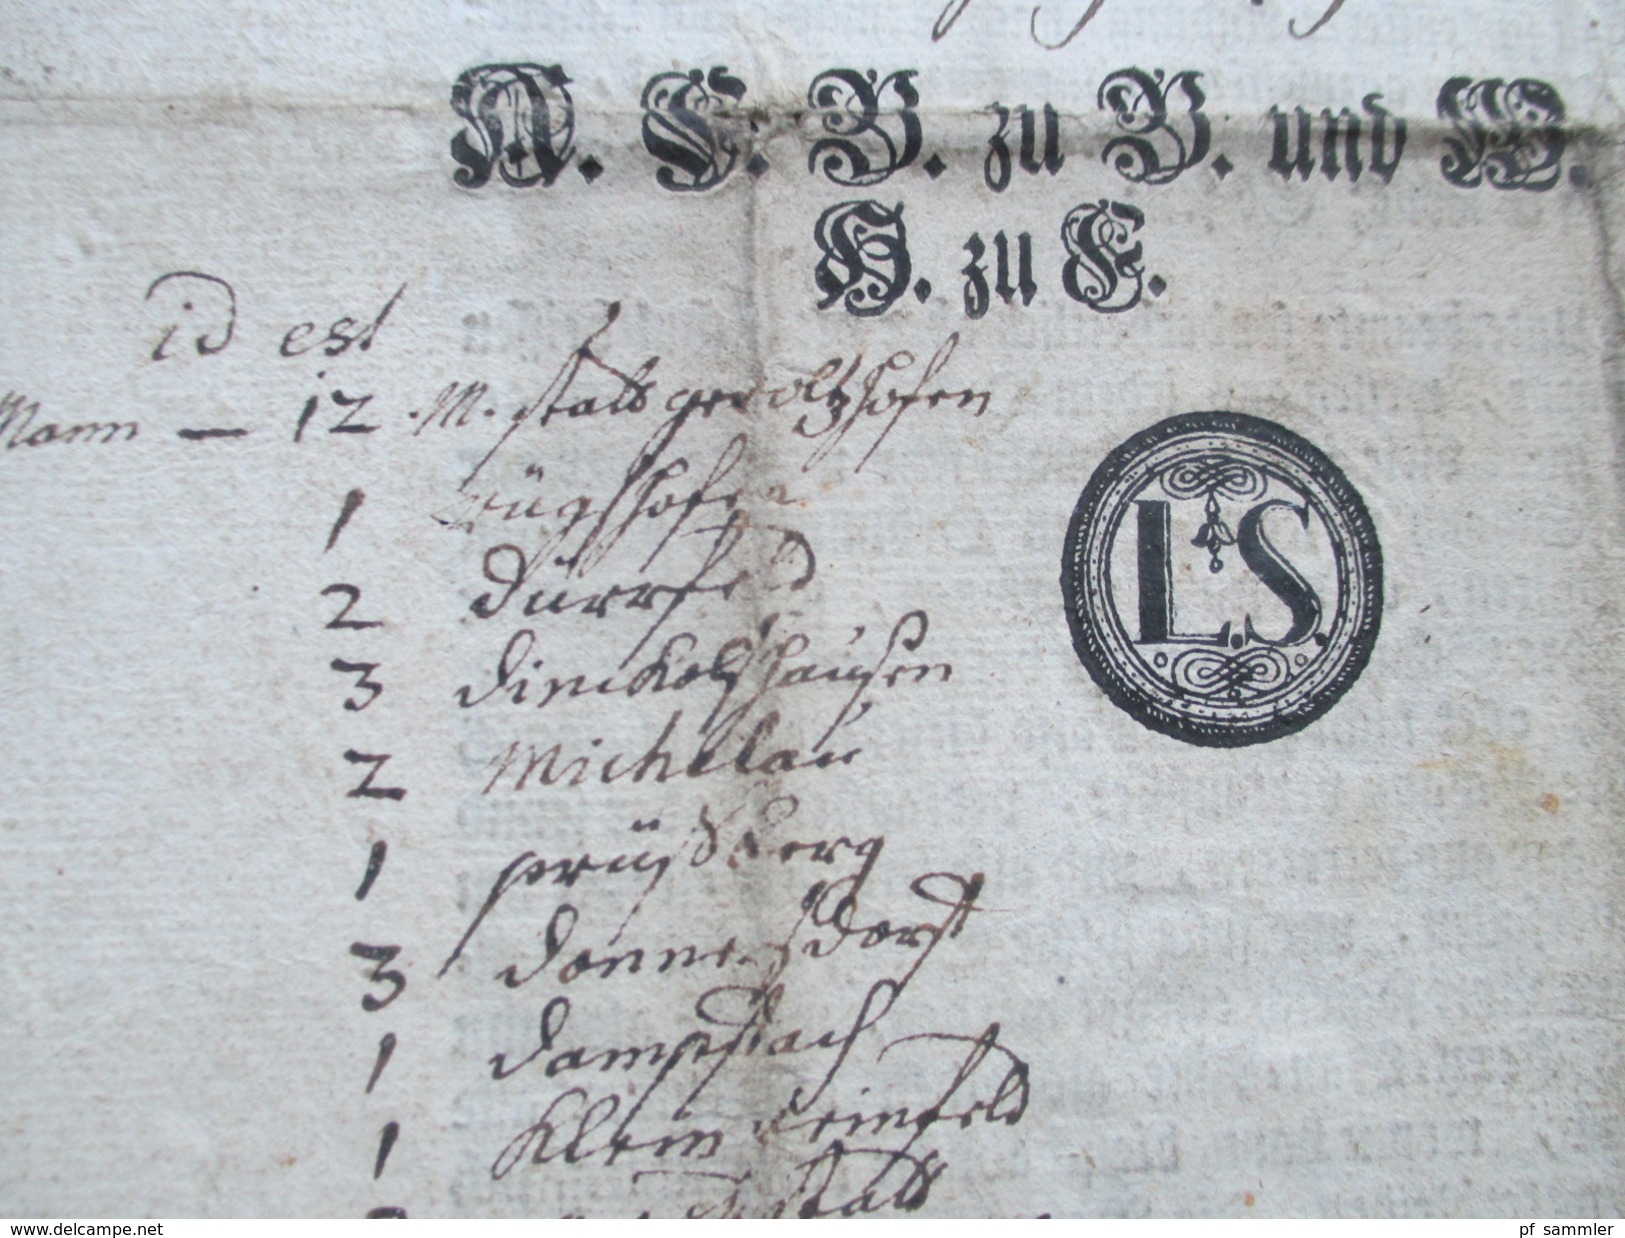 A. F. B. zu B. und W.
H. zu F.
id est
Mann — 12 M. statt geroltzhofen
1 rügshofen
2 dürrfeld
3 dinckolshausen
2 Michelau
1 prüsberg
3 donnersdorff
1 dampfach
1 Klein reinfeld
statt
L.S.
www.delcampe.net
pf_sammler